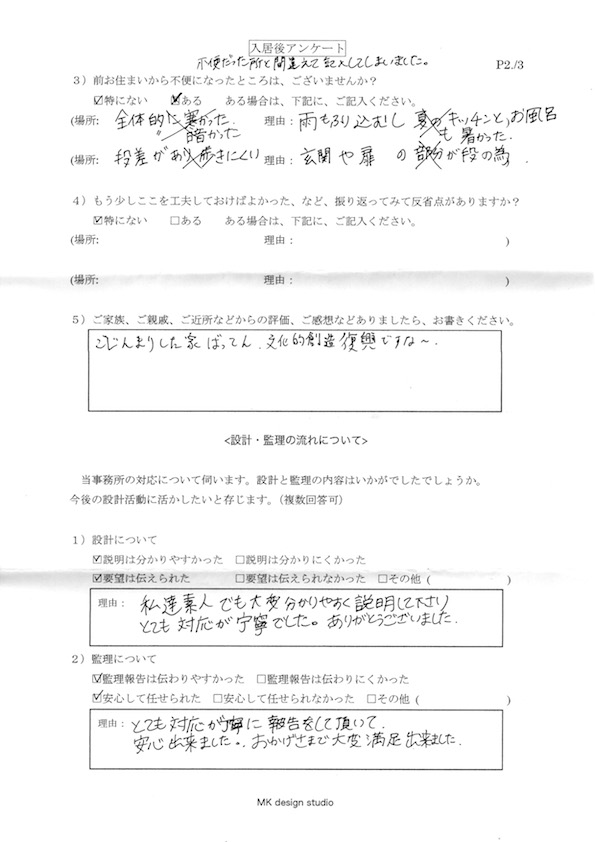 入居後アンケート
不便だった所と間違えて記入してしまいました。
P2./3
3）前お住まいから不便になったところは、ございませんか？
☑特にない ☑ある ある場合は、下記に、ご記入ください。
(場所: 全体的に寒かった 理由： 雨もふり込むし 夏のキッチンと,お風呂
〃 暗かった も 暑かった.
(場所: 段差があり歩きにくい 理由： 玄関や扉 の部分が段の為 .
4）もう少しここを工夫しておけばよかった、など、振り返ってみて反省点がありますか？
☑特にない □ある ある場合は、下記に、ご記入ください。
(場所: 理由： )
(場所: 理由： )
5）ご家族、ご親戚、ご近所などからの評価、ご感想などありましたら、お書きください。
こじんまりした家ばってん、文化的創造復興ですな〜.
<設計・監理の流れについて>
当事務所の対応について伺います。設計と監理の内容はいかがでしたでしょうか。
今後の設計活動に活かしたいと存じます。（複数回答可）
1）設計について
☑説明は分かりやすかった □説明は分かりにくかった
☑要望は伝えられた □要望は伝えられなかった □その他 ( )
理由： 私達素人でも大変分かりやすく説明して下さり
とても対応が丁寧でした。ありがとうございました.
2）監理について
☑監理報告は伝わりやすかった □監理報告は伝わりにくかった
☑安心して任せられた □安心して任せられなかった □その他 ( )
理由： とても対応が丁寧に報告をして頂いて.
安心出来ました。. おかげさまで大変満足出来ました.
MK design studio